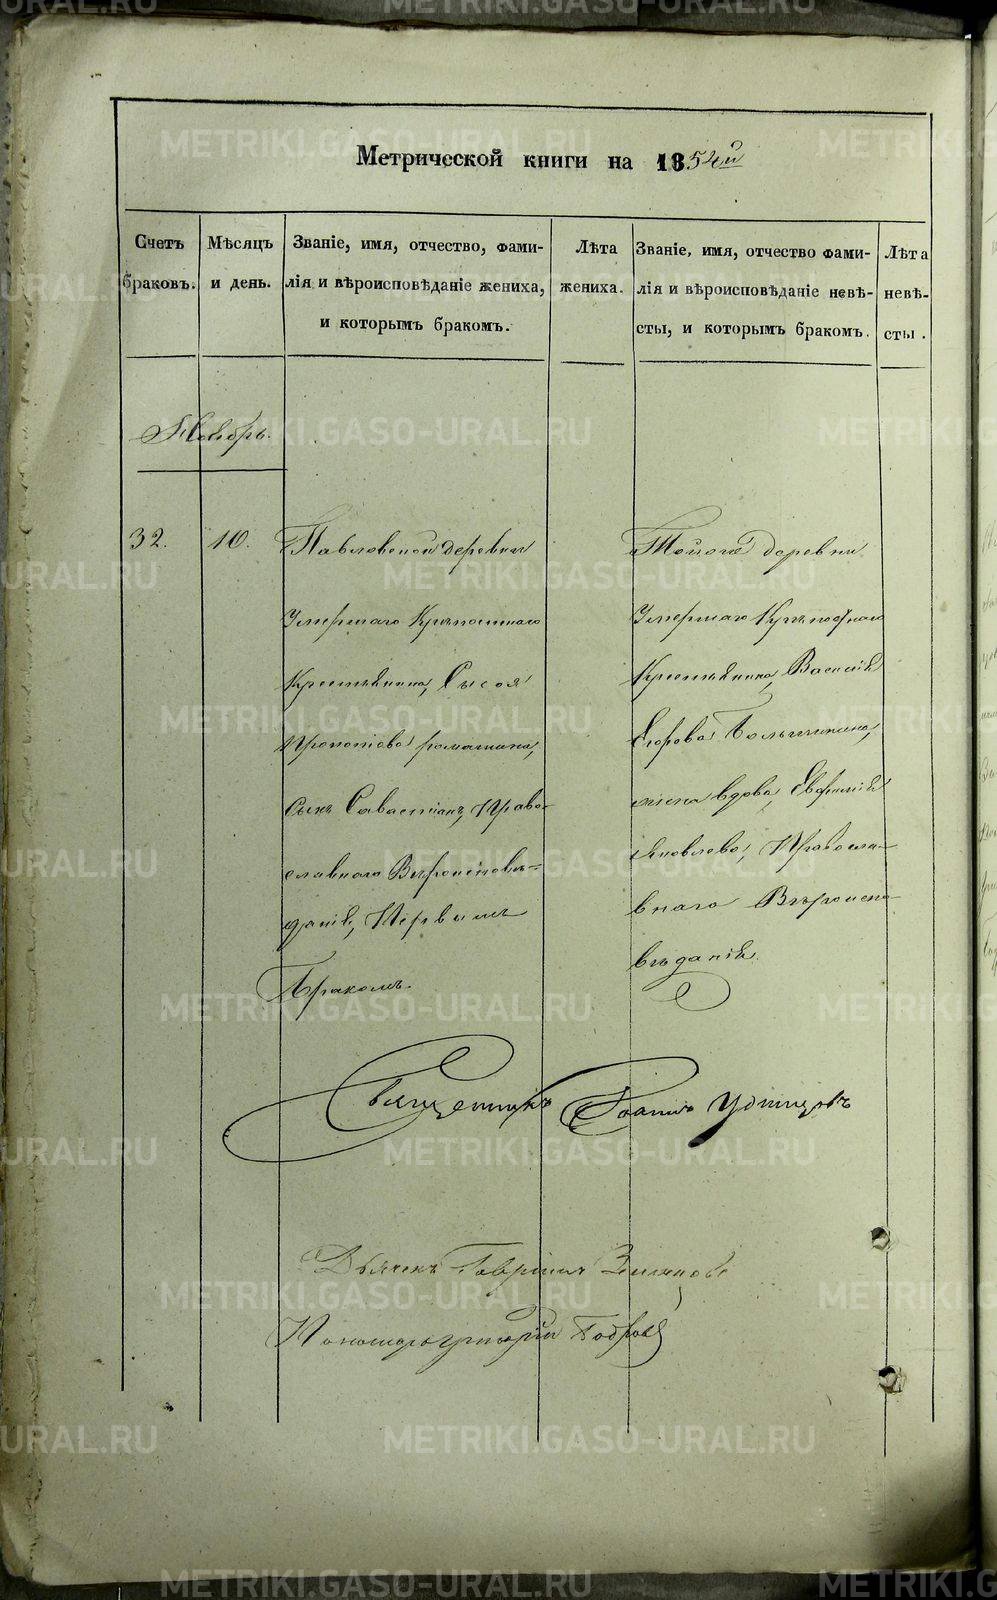 Метрической книги на 1854й
Счетъ браковъ.
Мѣсяцъ и день.
Званіе, имя, отчество, фами-
лія и вѣроисповѣданіе жениха,
и которымъ бракомъ.
Лѣта жениха.
Званіе, имя, отчество фами-
лія и вѣроисповѣданіе невѣ-
сты, и которымъ бракомъ.
Лѣта невѣ-
сты.
Ноябрь.
32.
10.
Павловской деревни
Умершаго Крѣпостнаго
Крестьянина, Сысоя
Прокопіева Ромашина,
Сынъ Савастіанъ, Право-
славнаго Вѣроисповѣ-
данія, Первымъ
Бракомъ.
Тойже деревни
Умершаго Крѣпостнаго
Крестьянина, Василія
Егорова
жена вдова, Евфимія
Яковлева, Правосла-
внаго Вѣроиспо-
вѣданія.
Священникъ Іоаннъ Удинцовъ
Дьячекъ Гавріилъ
Пономарь Григорій Бобровъ
METRIKI.GASO-URAL.RU